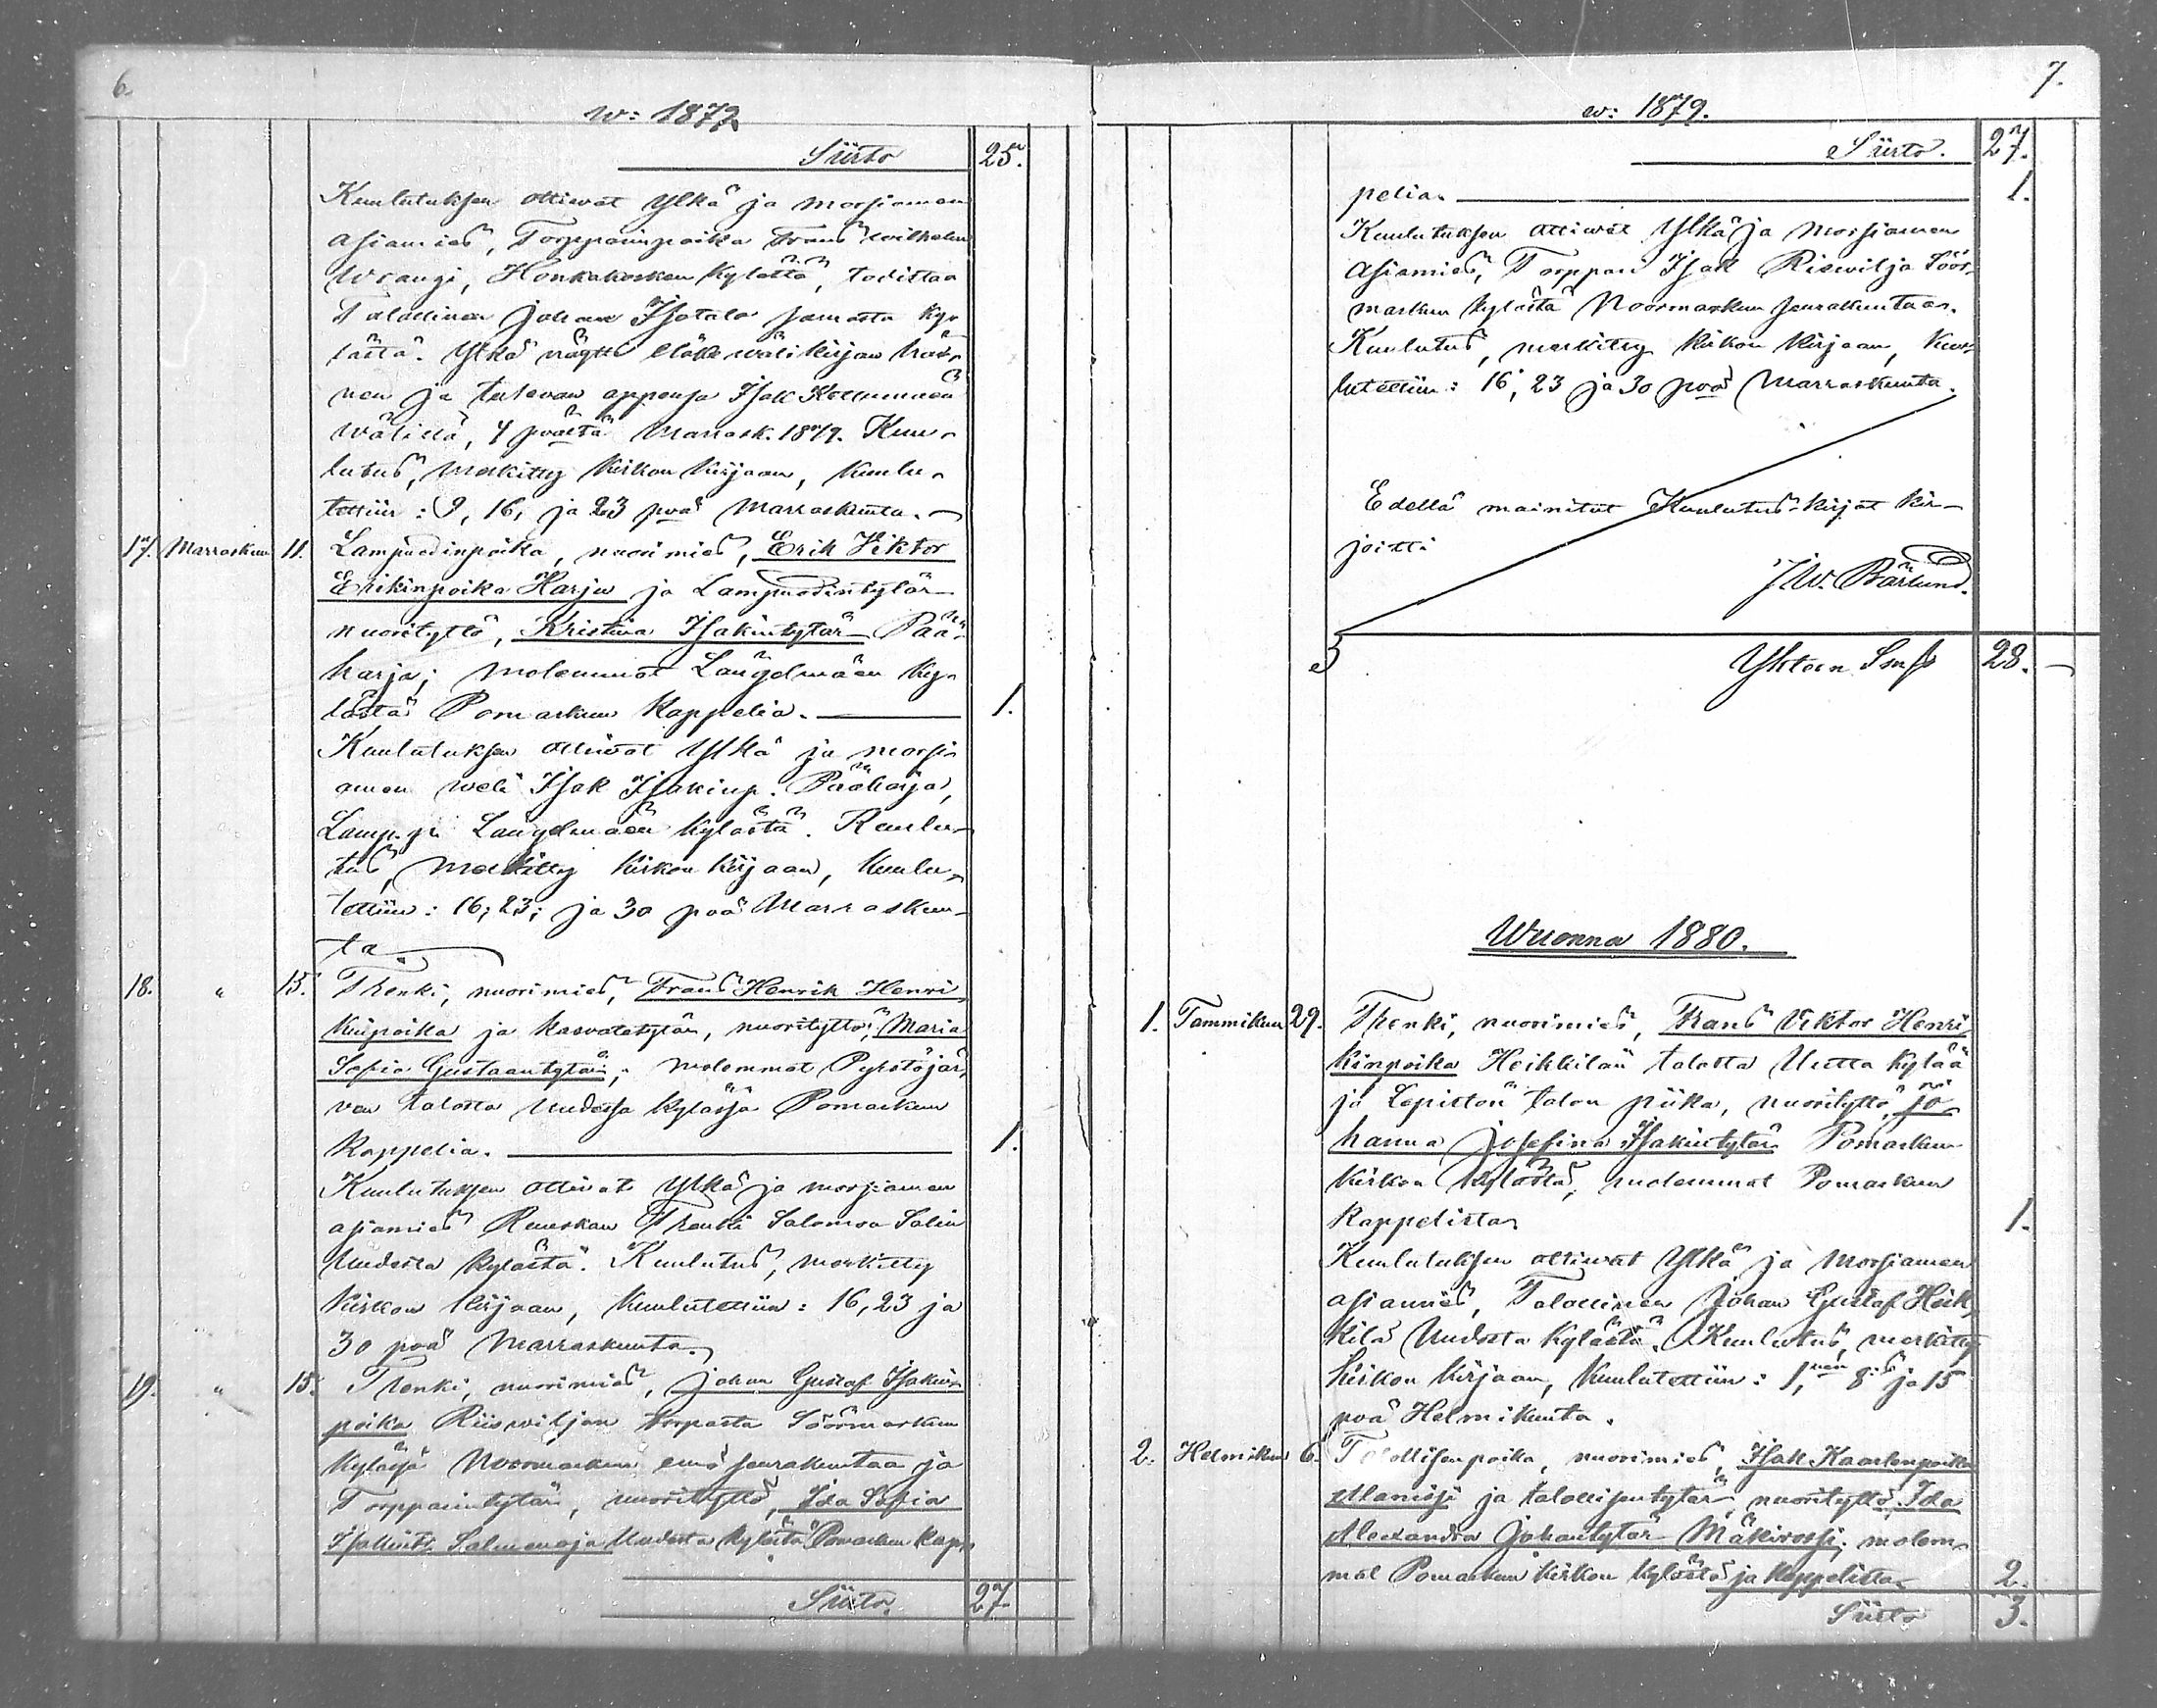 6.
w: 1879.
Siirto 25.
Kuulutuksen ottiwat Ylkä ja morsiamen
asiamies, Torpparinpoika Frans Wilhelm
Wrangi, Honkakosken kylästä, todistaa
Talollinen Johan Isotalo samasta ky-
lästä. Ylkä näytti eläke wälikirjan hä-
nen ja tulewan appensa Isak
wälillä, 4 päältä Marrask. 1879. Kuu-
lutus, merkitty kirkon kirjaan, kuulu-
tettiin: 9, 16, ja 23 pvä Marraskuuta.
17. Marraskuun 11. Lampuodinpoika, nuorimies, Erik Viktor
Erikinpoika Harju ja Lampuodintytär
nuorityttö, Kristina Isakintytär Pää-
harja; molemmat Längelmäen ky-
lästä Pomarkun Kappelia. 1.
Kuulutuksen ottiwat Ylkä ja morsi-
amen weli Isak Isakinp. Pääharja,
Lamp.p. Längelmäen kylästä. Kuulu-
tus, merkitty kirkon kirjaan, kuulu-
tettiin: 16; 23; ja 30 pvä Marraskuu-
ta.
18. " 15. Trenki, nuorimies, Frans Henrik Henri-
kinpoika ja kasvatetytär, nuorityttö, Maria
Sofia Gustaantytär; molemmat Pyrstöjär-
ven talosta Uudessa kylässä Pomarkun
Kappelia. 1.
Kuulutuksen ottivat Ylkä ja morsiamen
asiamies Ruuskan Trenki Salomon Salin
Uudesta kylästä. Kuulutus, merkitty
kirkon kirjaan, kuulutettiin: 16, 23 ja
30 pvä Marraskuuta.
19. " 15. Trenki, nuorimies, Johan Gustaf Isakin-
poika Riiswiljan torpasta Söörmarkun
kylässä Noormarkun emä seurakuntaa ja
Torpparintytär, nuorityttö, Ida Sofia
Isakint. Salmenoja Uudesta kylästä Pomarkun kap-
Siirto. 27.
7.
w: 1879.
Siirto. 27.
pelia. 1.
Kuulutuksen ottiwat Ylkä ja Morsiamen
Asiamies, Torppari Isak Riswilja Söör-
markun kylästä Noormarkun seurakuntaa.
Kuulutus, merkitty kirkon kirjaan, kuu-
lutettiin: 16, 23 ja 30 pvä Marraskuuta.
Edellä mainitut Kuulutus-kirjat kir-
joitti
J.W. Bärlund.
Yhteen Sm 28. —
Wuonna 1880.
1. Tammikuun 29. Trenki, nuorimies, Frans Viktor Henri-
kinpoika Heikkilän talosta Uutta kylää
ja Lepistön talon piika, nuorityttö, Jo-
hanna Josefina Isakintytär Pomarkun
kirkon kylästä, molemmat Pomarkun
kappelista. 1.
Kuulutuksen ottiwat Ylkä ja Morsiamen
asiamies, Talollinen Johan Gustaf Heik-
kilä Uudesta kylästä. Kuulutus, merkitty
kirkon kirjaan, kuulutettiin: 1, 8 ja 15
pvä Helmikuuta.
2. Helmikuun 6. Talollisenpoika, nuorimies, Isak Kaarlenpoika
ja talollisentytär nuorityttö, Ida
Alexandra Johantytär Mäkirossi; molem-
mat Pomarkun kirkon kylästä ja kappelista. 2.
Siirto 3.